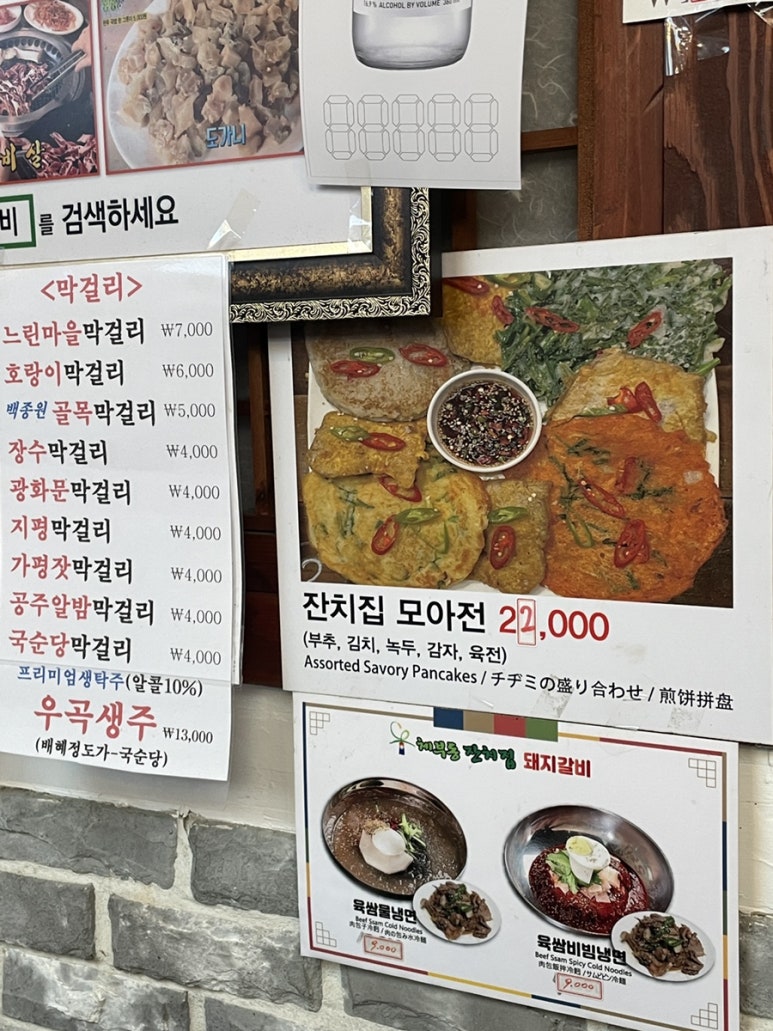 16.9% ALCOHOL BY VOLUME 360
도가니
비 살
비 를 검색하세요
<막걸리>
느린마을막걸리 ₩7,000
호랑이막걸리 ₩6,000
백종원 골목막걸리 ₩5,000
장수막걸리 ₩4,000
광화문막걸리 ₩4,000
지평막걸리 ₩4,000
가평잣막걸리 ₩4,000
공주알밤막걸리 ₩4,000
국순당막걸리 ₩4,000
프리미엄생탁주(알콜10%)
우곡생주 ₩13,000
(배혜정도가-국순당)
잔치집 모아전 22,000
(부추, 김치, 녹두, 감자, 육전)
Assorted Savory Pancakes / チヂミの盛り合わせ / 煎饼拼盘
체부동 잔치집 돼지갈비
육쌈물냉면
Beef Ssam Cold Noodles
肉包子冷麪 / 肉の包み水冷麺
9,000
육쌈비빔냉면
Beef Ssam Spicy Cold Noodles
肉包飯拌冷麪 / サムビビン冷麺
9,000